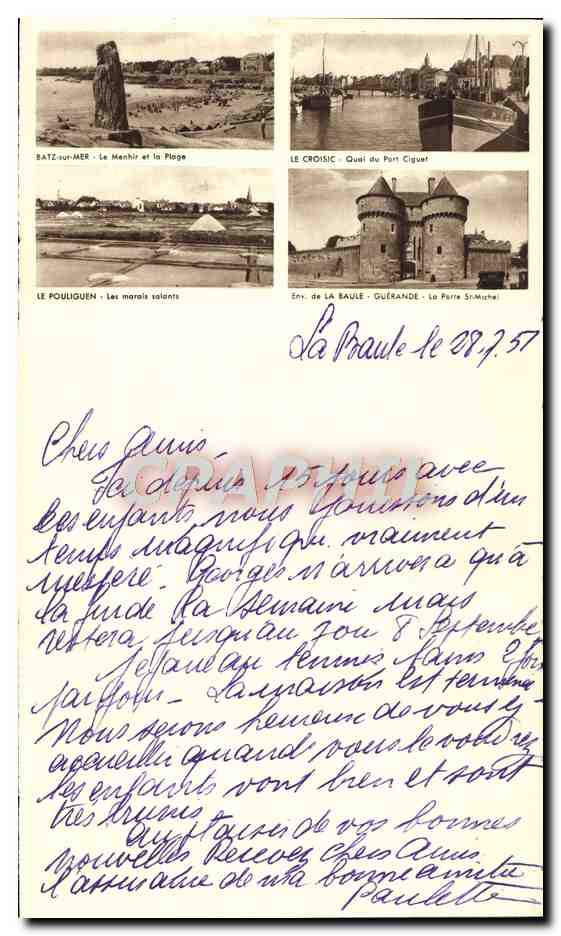 BATZ-sur-MER - Le Menhir et la Plage
LE CROISIC - Quai du Port Ciguet
LE POULIGUEN - Les marais salants
Env. de LA BAULE - GUÉRANDE - La Porte St-Michel
La Baule le 28.7.51
Chers Amis -
Ici depuis 15 jours avec
les enfants nous jouissons d'un
temps magnifique vraiment
Georges n'arrivera qu'à
la fin de la semaine mais
restera jusqu'au 7 ou 8 Septembre
Je joue au tennis 2 fois
par jour - La maison est terminée
Nous serons heureux de vous y
accueillir quand vous le voudrez
Les enfants vont bien et sont
très bruns
Au plaisir de vos bonnes
nouvelles Recevez chers Amis
l'assurance de ma bonne amitié
Paulette
CPAPHIL